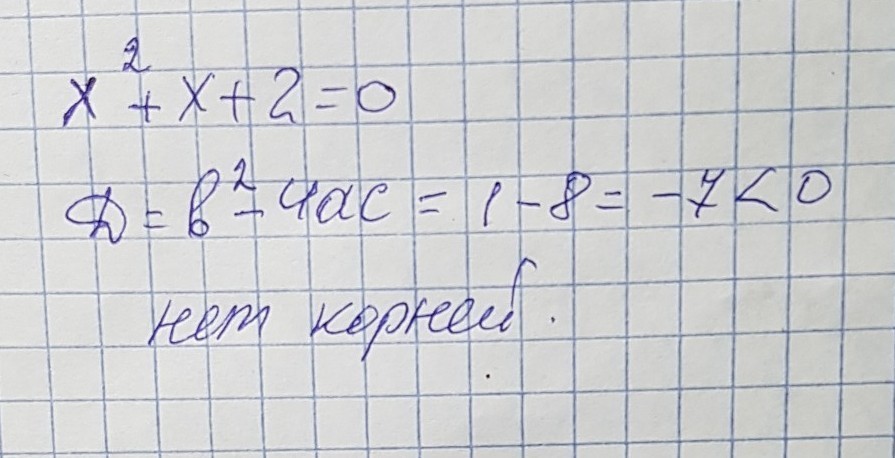 x² + x + 2 = 0
D = b² - 4ac = 1 - 8 = -7 < 0
нет корней.